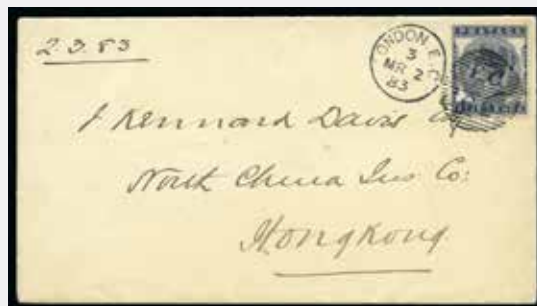 2.3.83
LONDON E.C
3
MR 2
83
POSTAGE
E.C
J Kennard Davis Esq
North China Ins Co:
Hongkong.